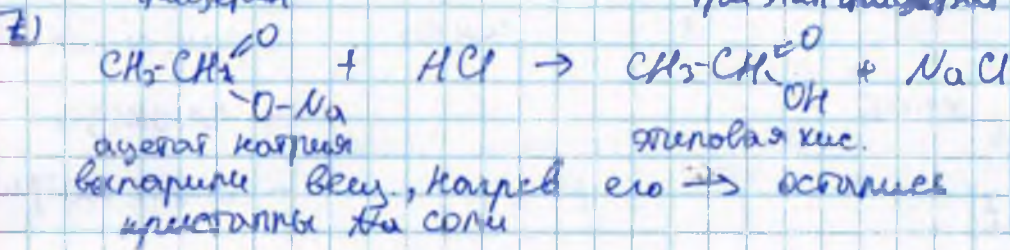 2)
CH₃-CH₂ =O + HCl → CH₃-CH₂ =O + NaCl
O-Na OH
ацетат натрия этиловая кис.
выпарили вещ., нагрев его → остались
кристаллы соли